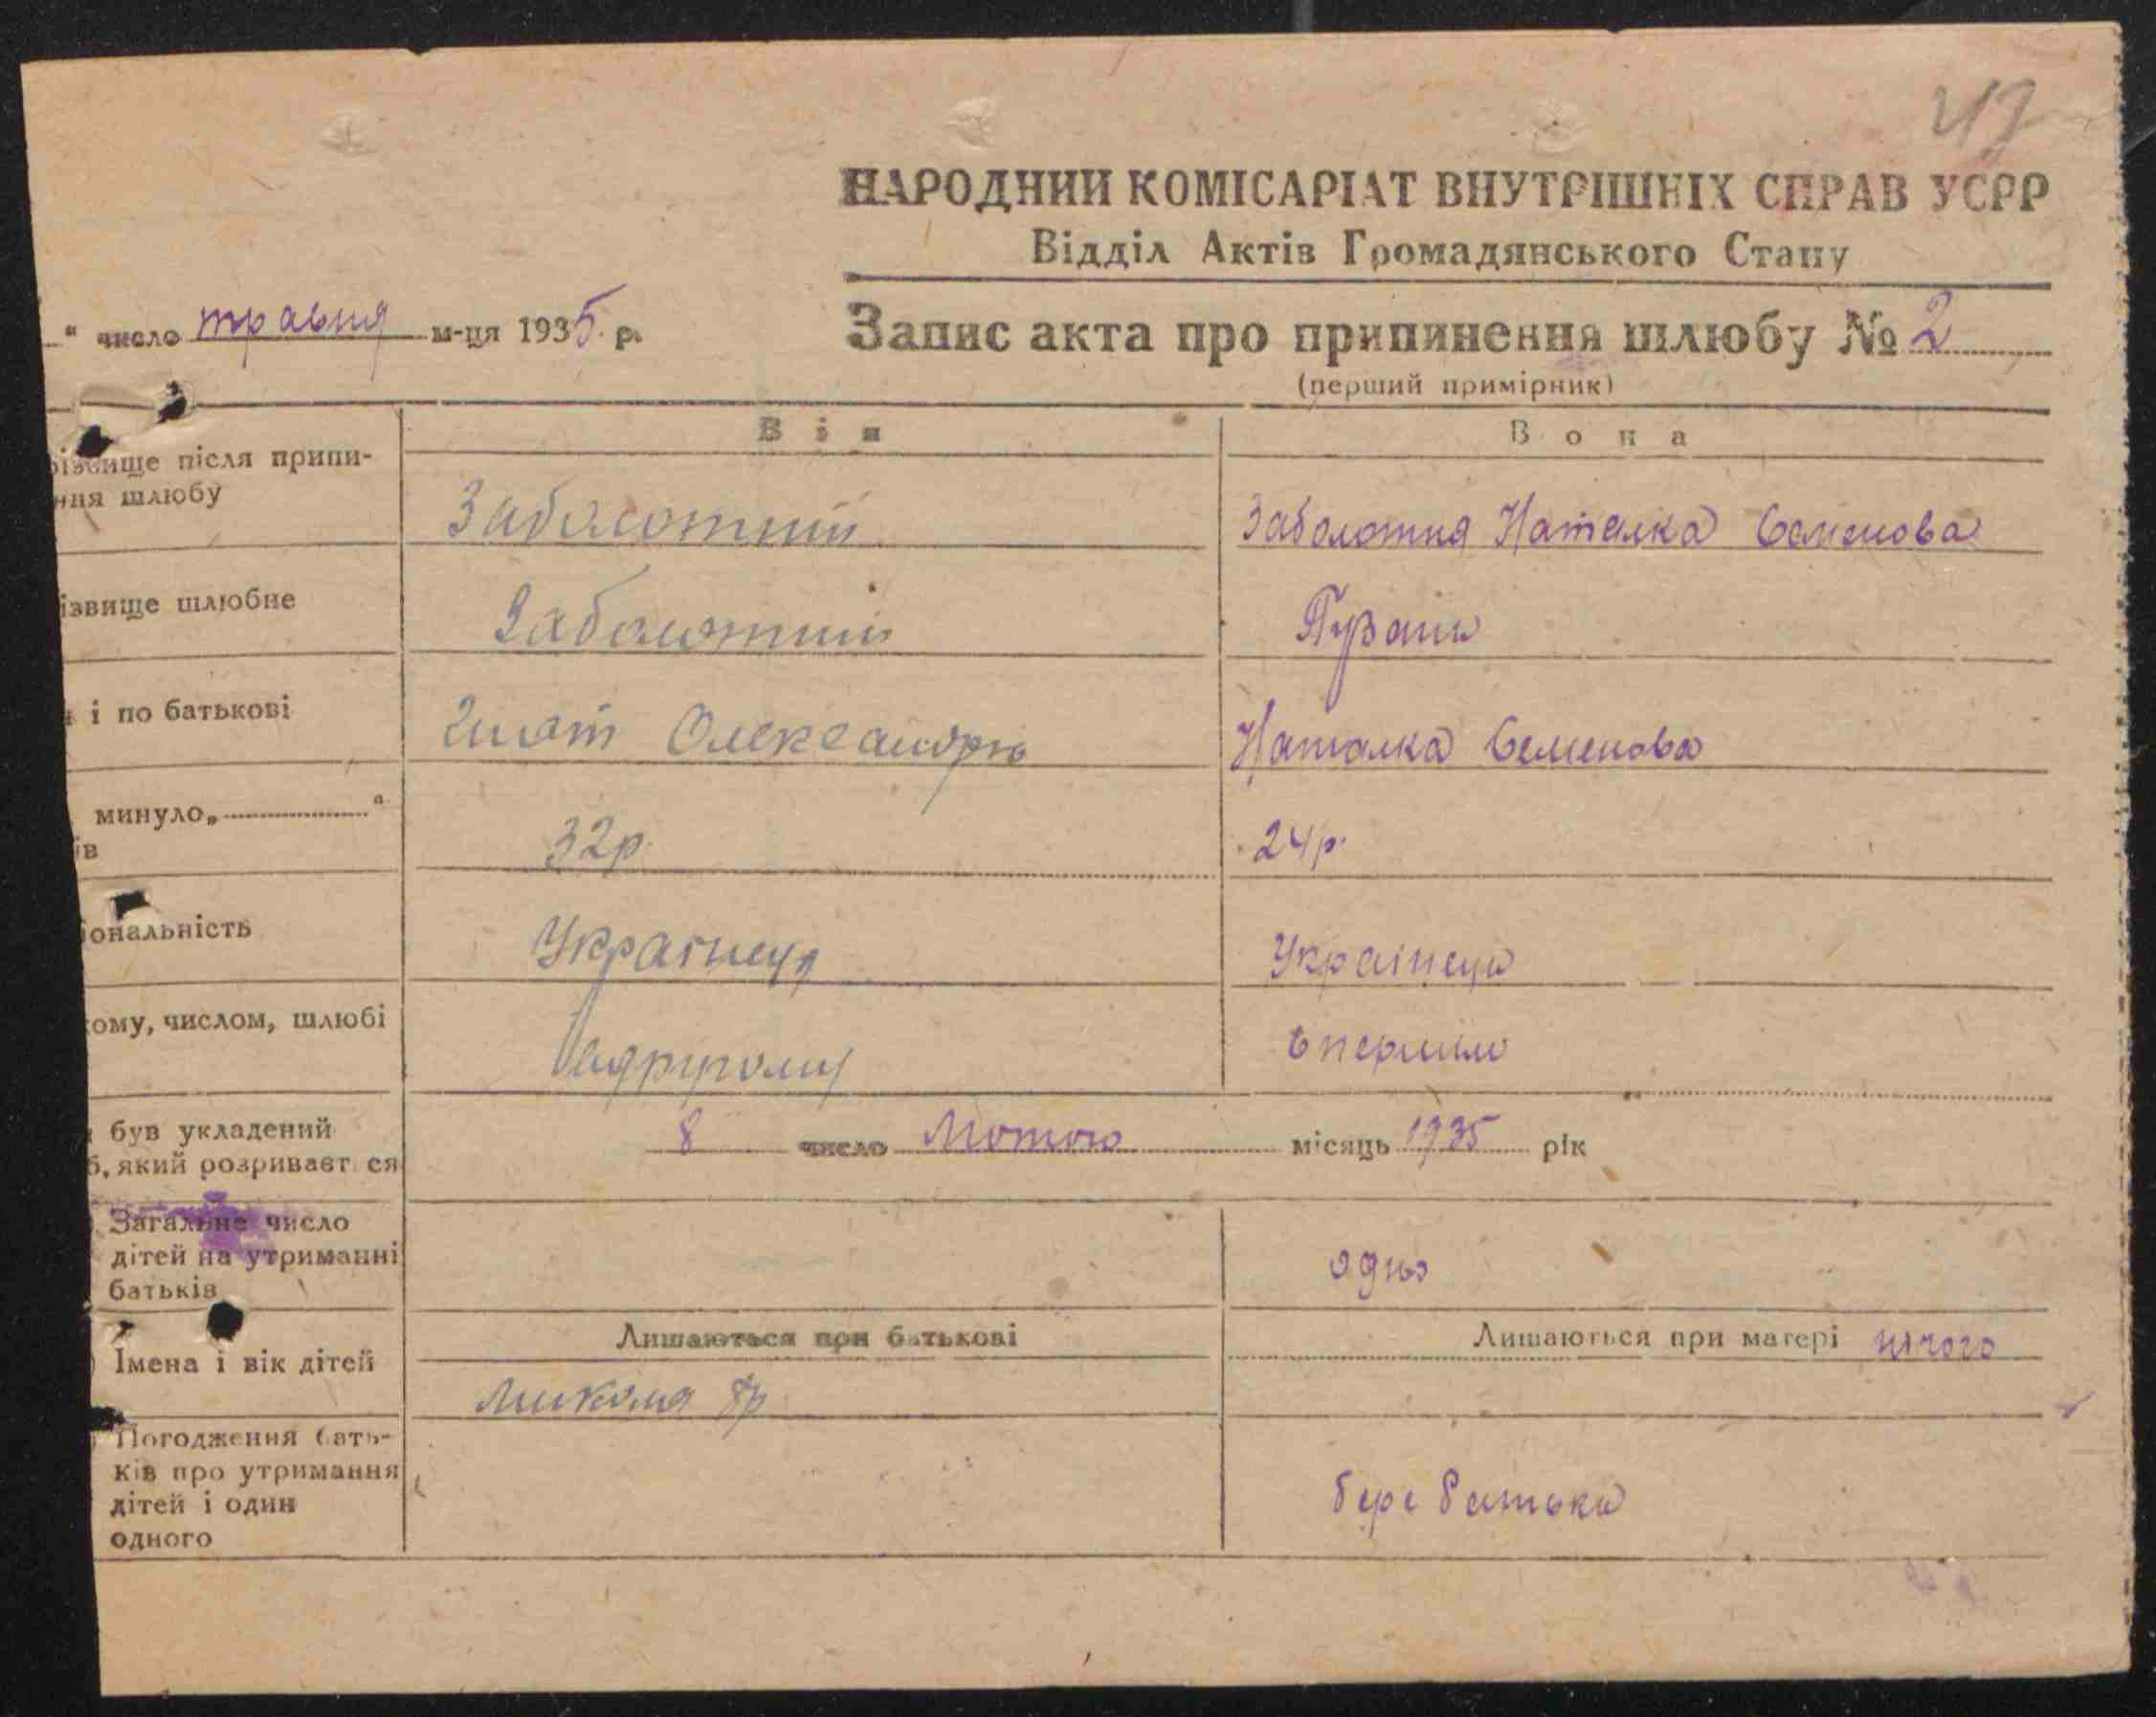 42
НАРОДНИЙ КОМІСАРІАТ ВНУТРІШНІХ СПРАВ УСРР
Відділ Актів Громадянського Стану
" число травня м-ця 1935 р.
Запис акта про припинення шлюбу № 2
(перший примірник)
Він
Вона
різвище після припи-
ння шлюбу
Заболотний
Заболотня Наталка Семенова
ізвище шлюбне
Заболотний
і по батькові
Гнат Олександрів
Наталка Семенова
минуло „ “
ів
32р.
24р.
іональність
Українец
Українец
кому, числом, шлюбі
вдругому
був укладений
б, який розривает ся
8 число Лютого місяць 1935 рік
Загальне число
дітей на утриманні
батьків
одно
Імена і вік дітей
Лишаються при батькові
Лишаються при матері нічого
Микола 8р
Погодження бать-
ків про утримання
дітей і один
одного
бере батько